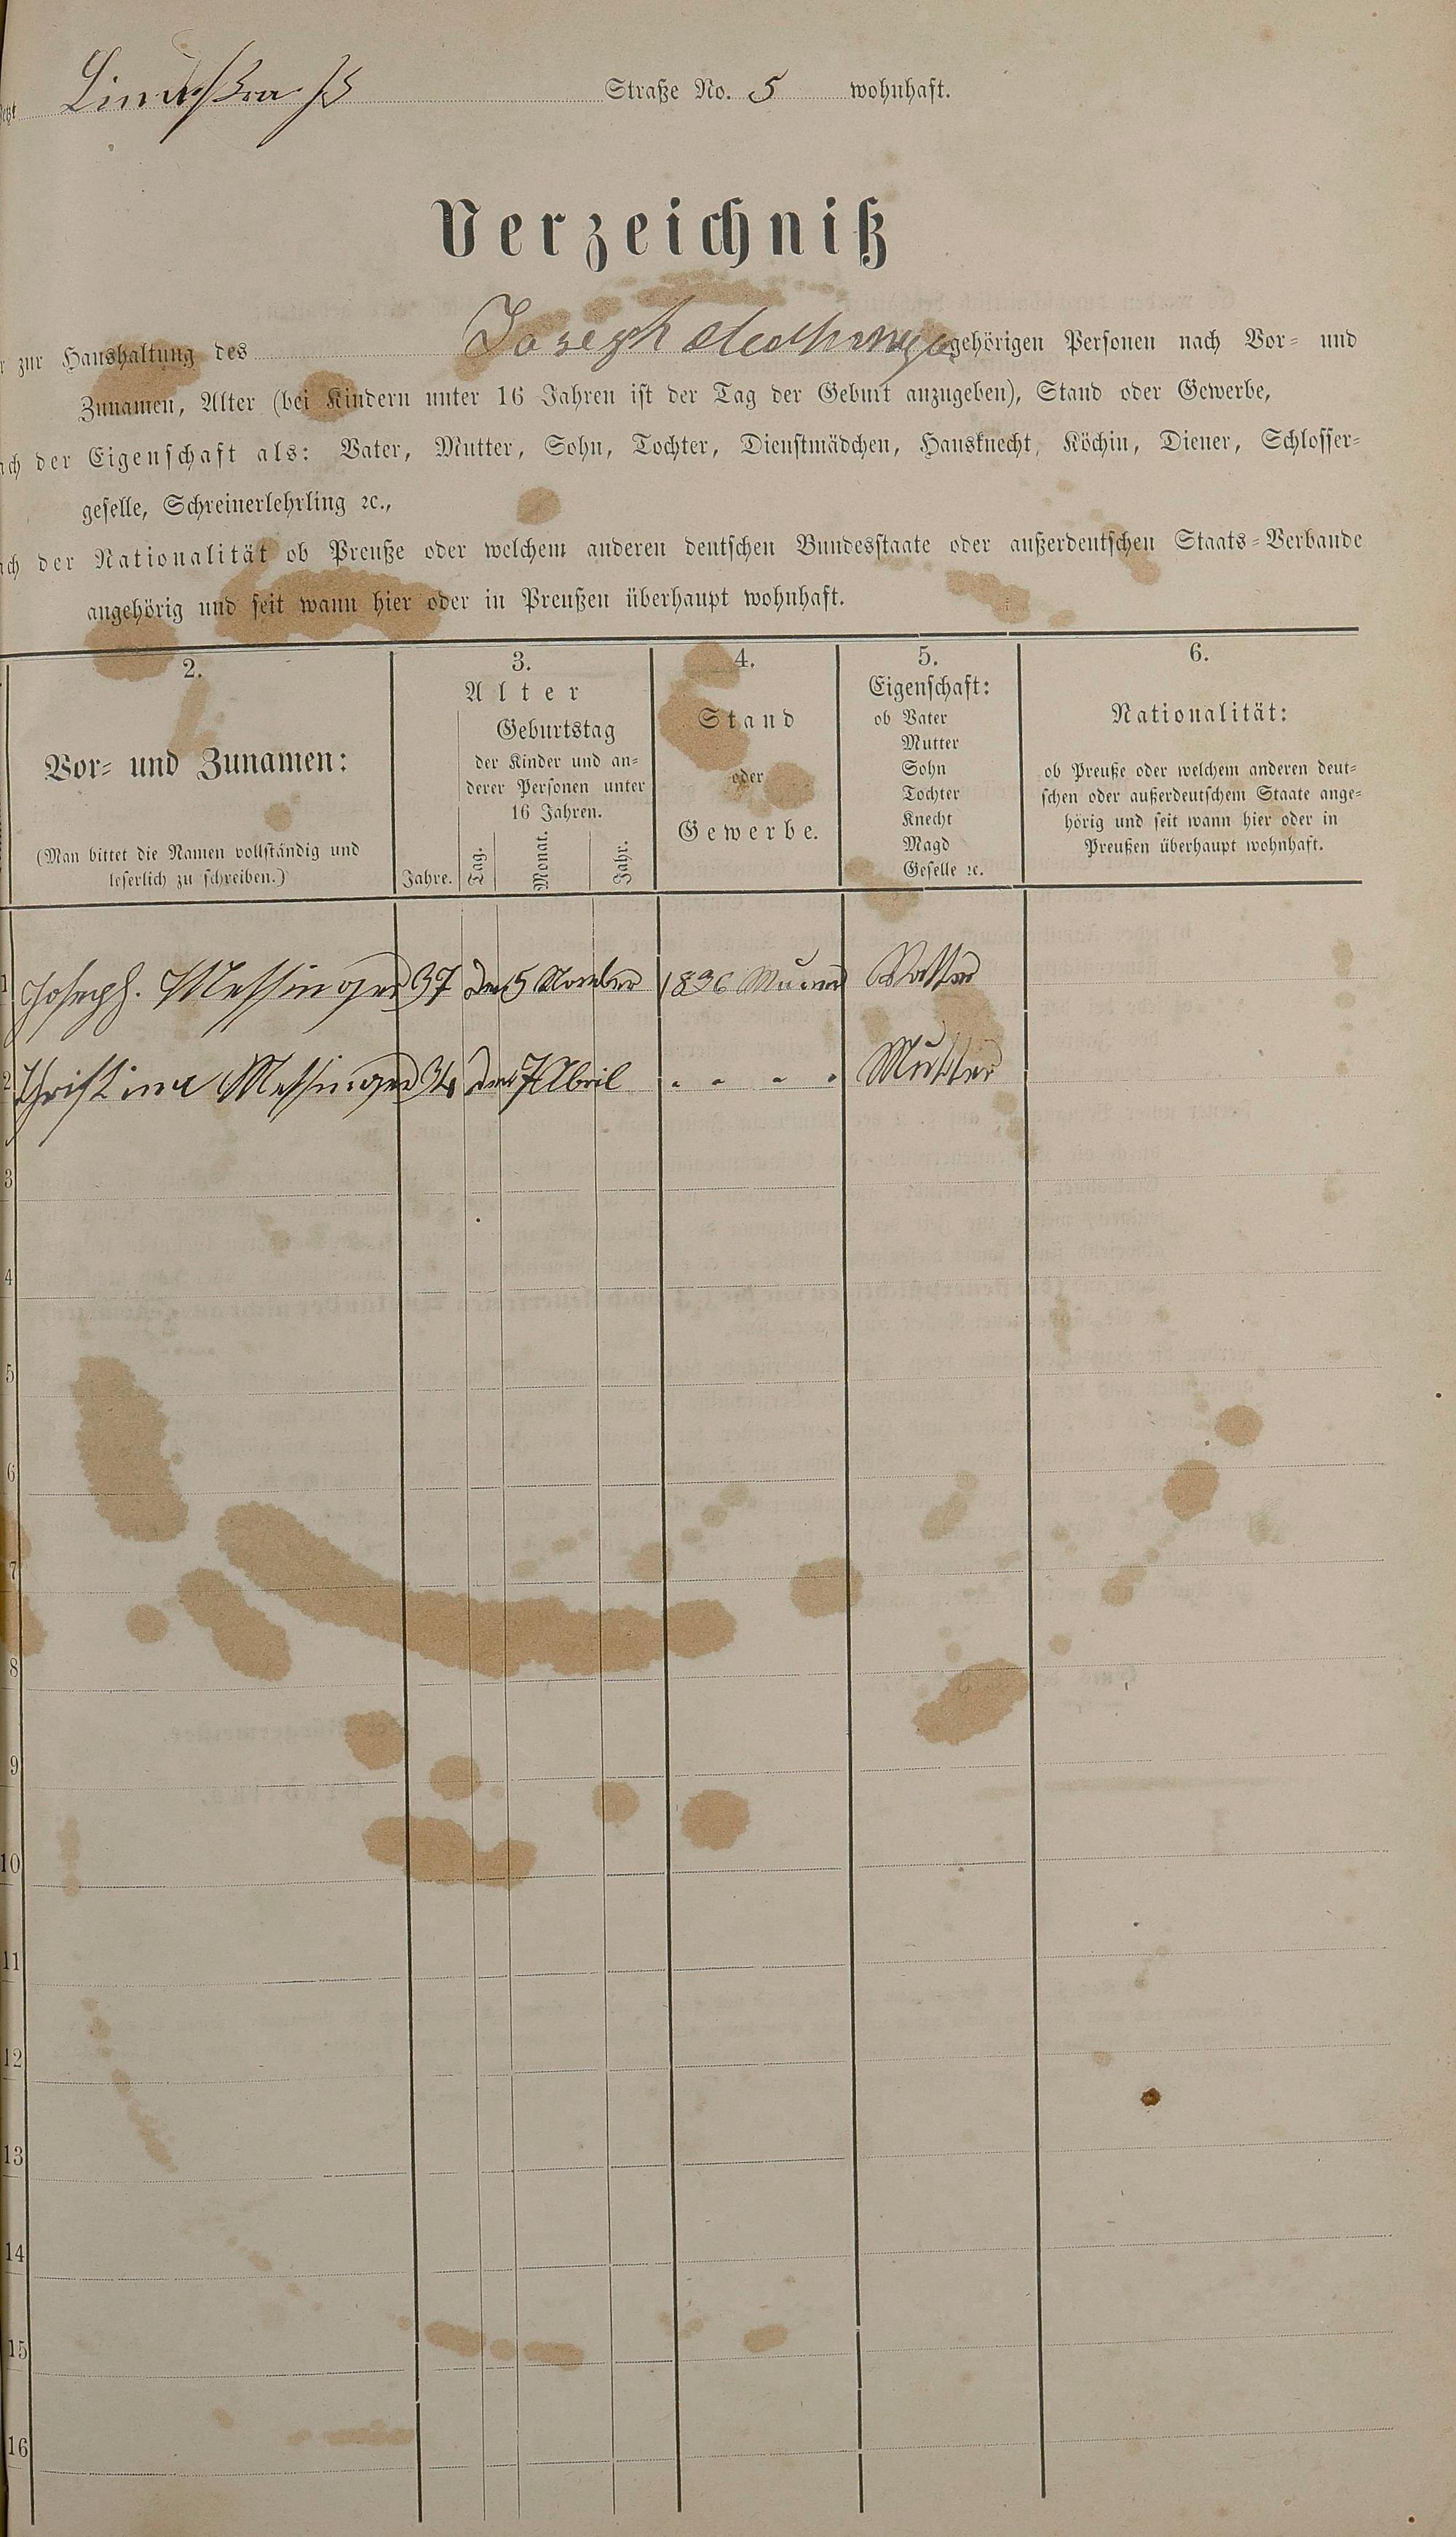 Straße No. 5 wohnhaft.
Verzeichniß
zur Haushaltung des Joseph gehörigen Personen nach Vor- und
Zunamen, Alter (bei Kindern unter 16 Jahren ist der Tag der Geburt anzugeben), Stand oder Gewerbe,
der Eigenschaft als: Vater, Mutter, Sohn, Tochter, Dienstmädchen, Hausknecht, Köchin, Diener, Schlosser-
geselle, Schreinerlehrling ꝛc.,
der Nationalität ob Preuße oder welchem anderen deutschen Bundesstaate oder außerdeutschen Staats-Verbande
angehörig und seit wann hier oder in Preußen überhaupt wohnhaft.
2.
Vor- und Zunamen:
(Man bittet die Namen vollständig und
leserlich zu schreiben.)
3.
Alter
Geburtstag
der Kinder und an-
derer Personen unter
16 Jahren.
Jahre. Tag. Monat. Jahr.
4.
Stand
oder
Gewerbe.
5.
Eigenschaft:
ob Vater
Mutter
Sohn
Tochter
Knecht
Magd
Geselle ꝛc.
6.
Nationalität:
ob Preuße oder welchem anderen deut-
schen oder außerdeutschem Staate ange-
hörig und seit wann hier oder in
Preußen überhaupt wohnhaft.
1 Joseph. Messinger 37 den 5 1836 Vatter
2 Christina Messinger 34 den 7 Abril Mutter
3
4
5
6
7
8
9
10
11
12
13
14
15
16